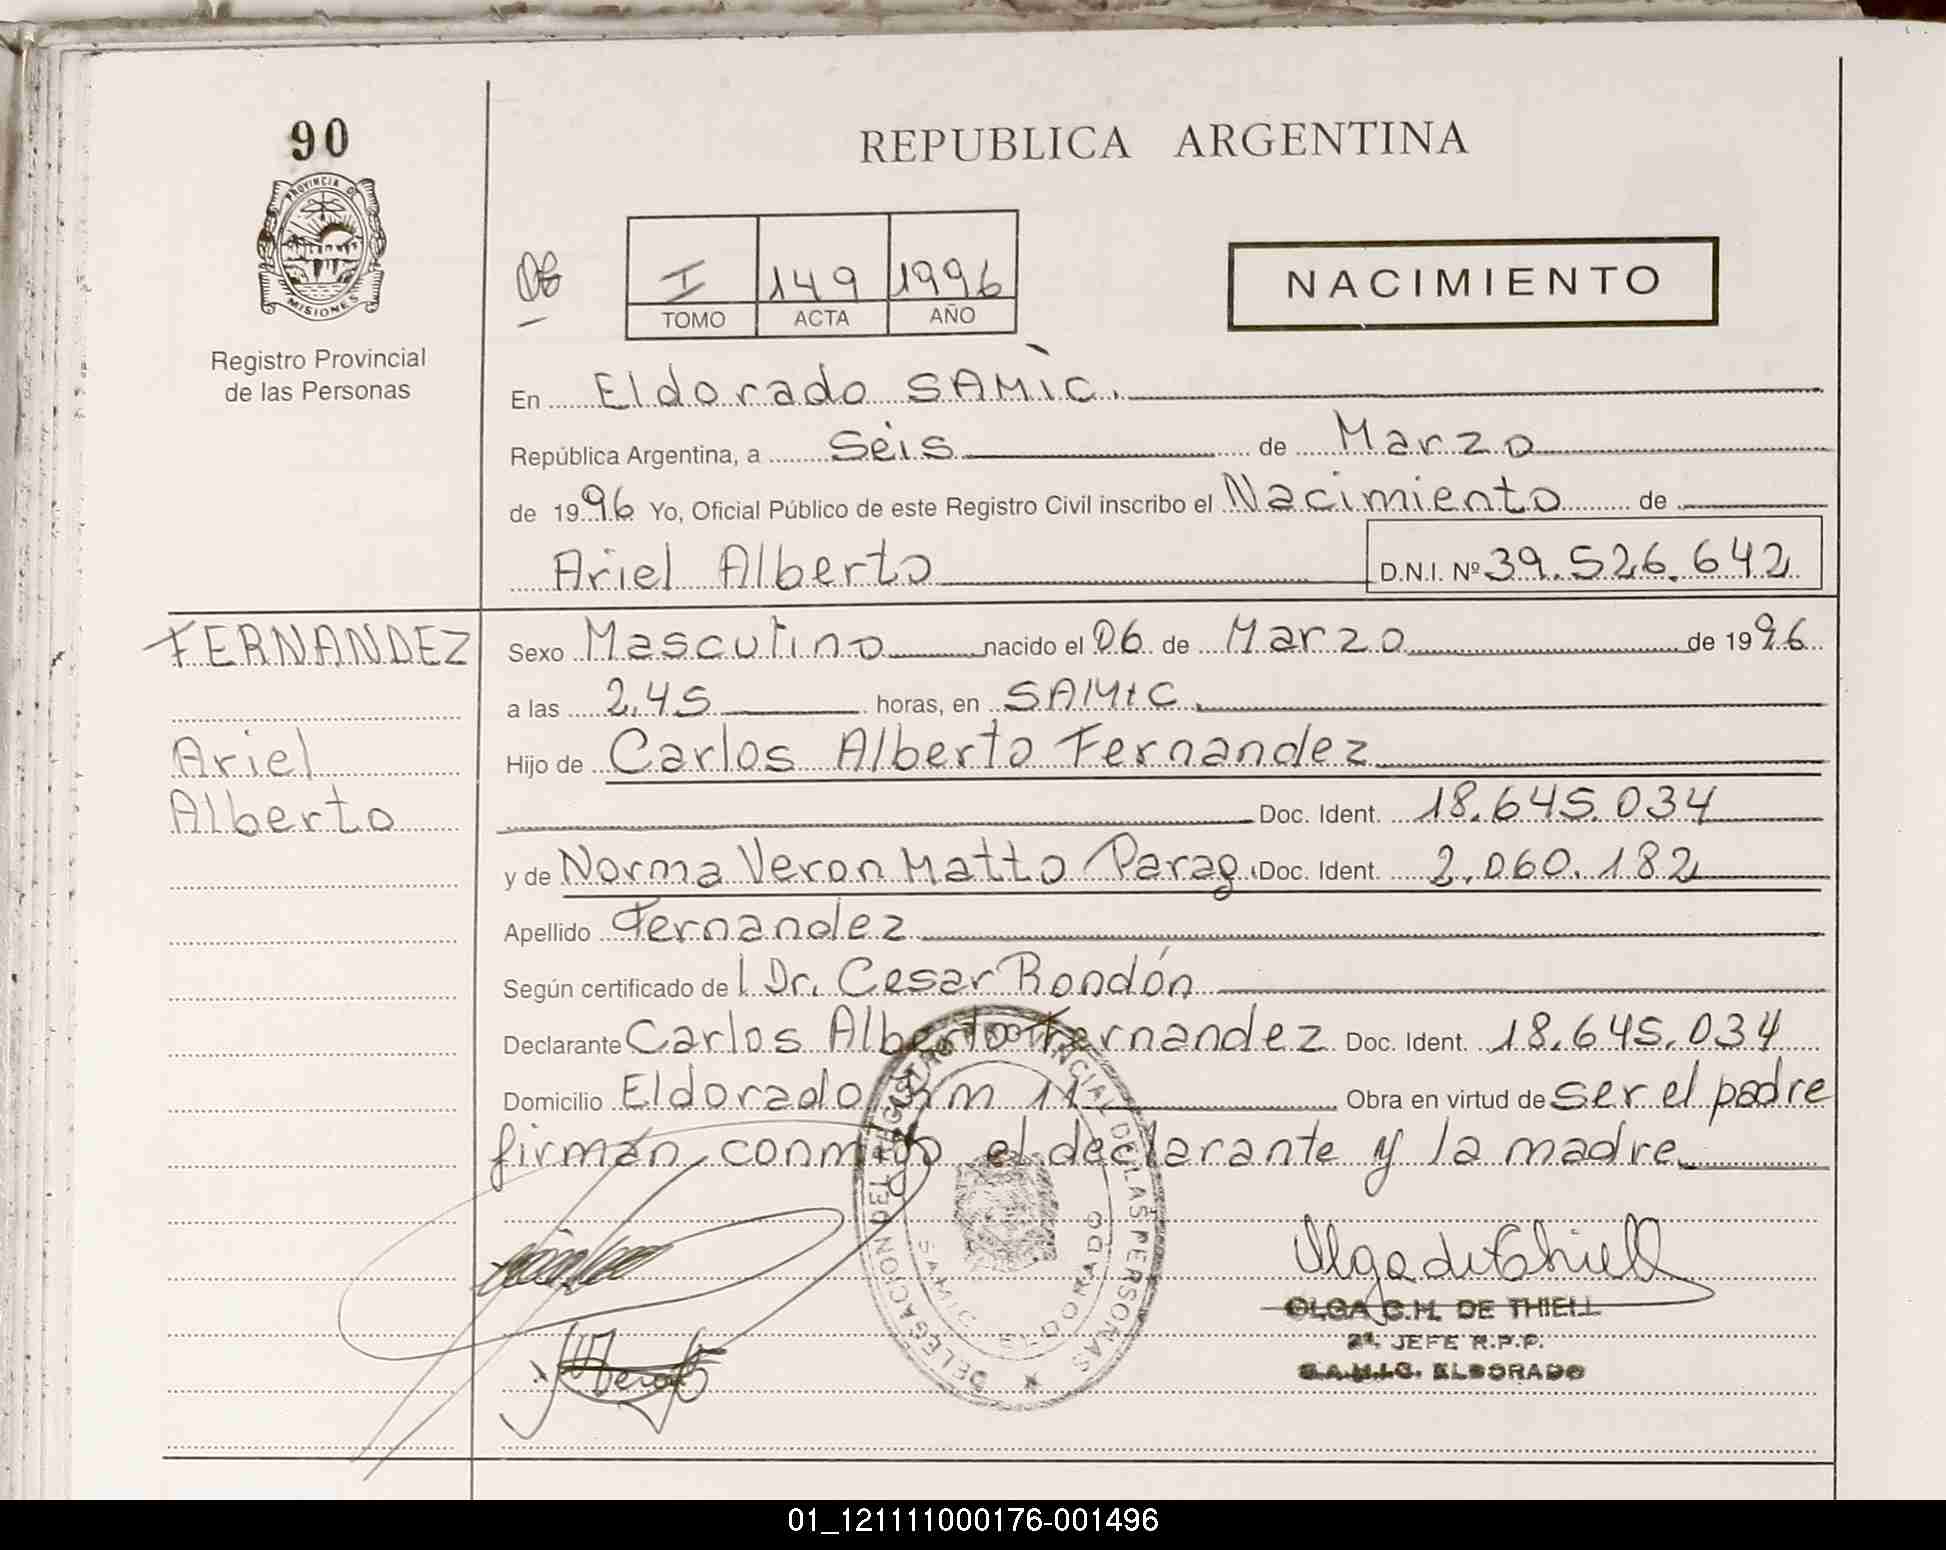 90
PROVINCIA DE
MISIONES
Registro Provincial
de las Personas
REPUBLICA ARGENTINA
06
I 149 1996
TOMO ACTA AÑO
NACIMIENTO
En Eldorado SAMIC.
República Argentina, a Seis de Marzo
de 1996 Yo, Oficial Público de este Registro Civil inscribo el Nacimiento de
Ariel Alberto D.N.I. Nº 39.526.642
FERNANDEZ
Ariel
Alberto
Sexo Masculino nacido el 06 de Marzo de 1996
a las 2,45 horas, en SAMIC
Hijo de Carlos Alberto Fernandez
Doc. Ident. 18.645.034
y de Norma Veron Matto Parag. Doc. Ident. 2.060.182
Apellido Fernandez
Según certificado del Dr. Cesar Rondón
Declarante Carlos Alberto Fernandez Doc. Ident. 18.645.034
Domicilio Eldorado km 11 Obra en virtud de ser el padre
firman conmigo el declarante y la madre
DELEGACION DEL REGISTRO PROVINCIAL DE LAS PERSONAS
SAMIC ELDORADO
Olga de Thiell
OLGA C.H. DE THIELL
2ª JEFE R.P.P.
S.A.M.I.C. ELDORADO
01_121111000176-001496